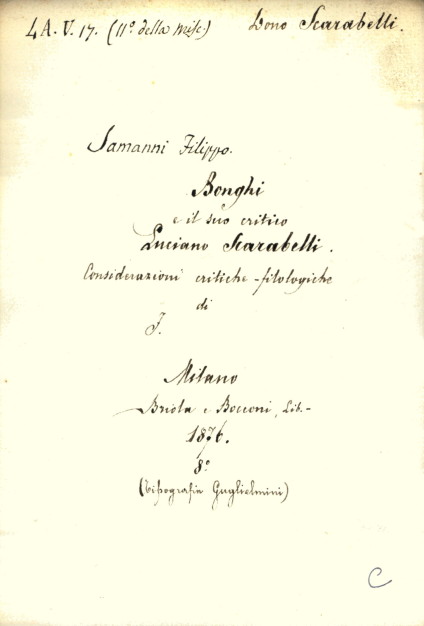 4A. V. 17. (11º della misc.) Dono Scarabelli.
Samanni Filippo.
Bonghi
e il suo critico
Luciano Scarabelli.
Considerazioni critiche-filologiche
di
F.
Milano
Briola e Bocconi, Lib.-
1876.
8º
(Tipografia Guglielmini)
C